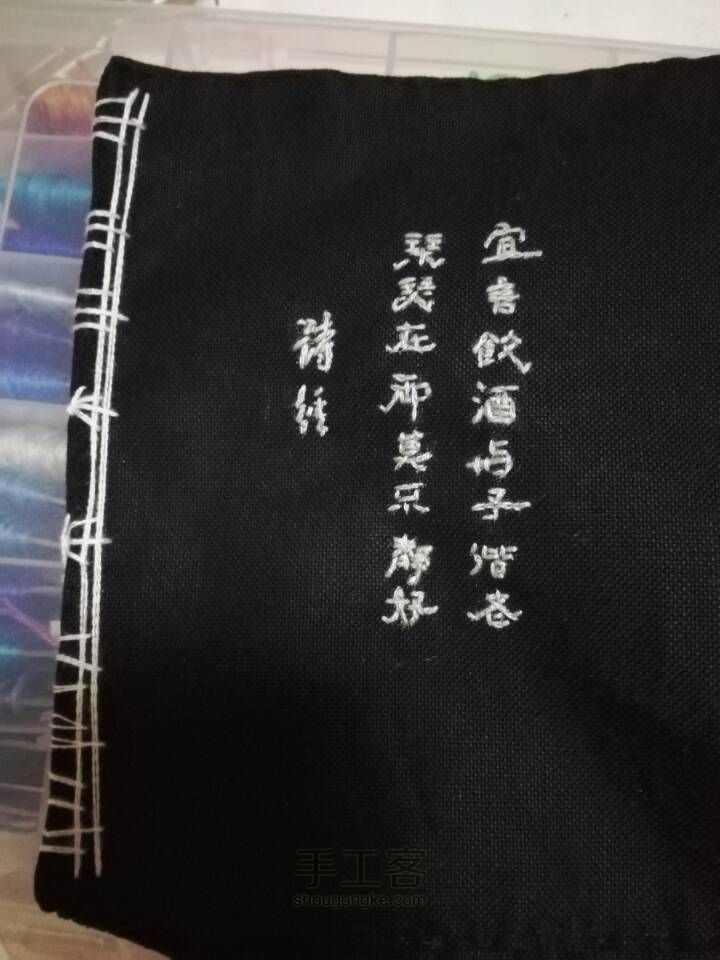 宜言飲酒与子偕老
琴瑟在御莫不靜好
詩經
手工客
shougongke.com